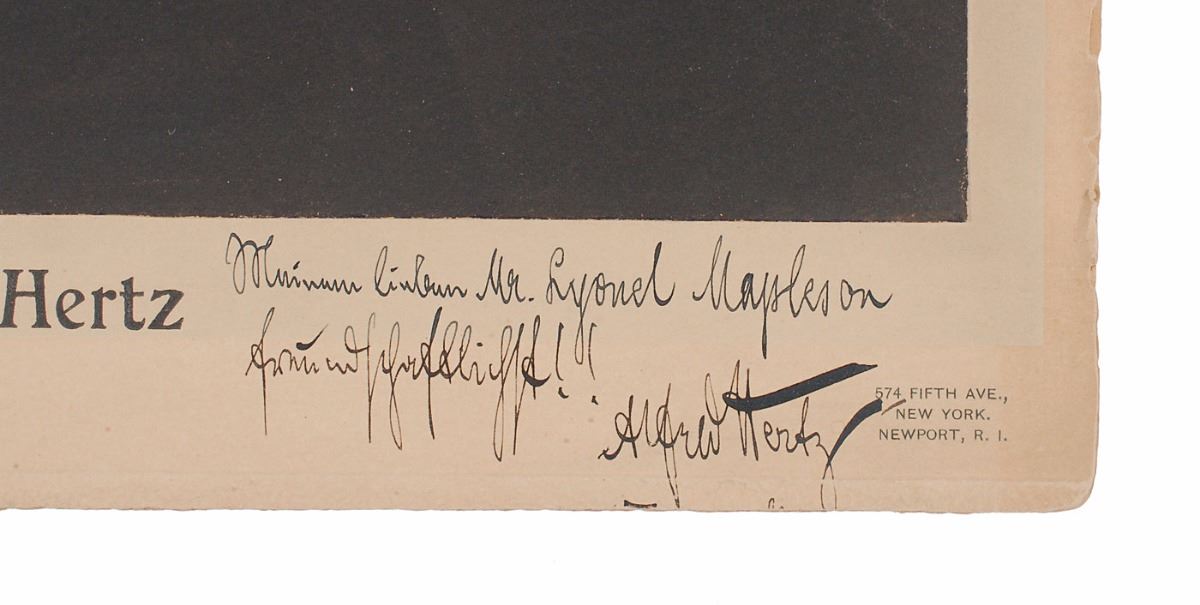 Hertz
Meinem lieben Mr. Lyonel Mapleson
freundschaftlichst!!
Alfred Hertz
574 FIFTH AVE.,
NEW YORK.
NEWPORT, R. I.